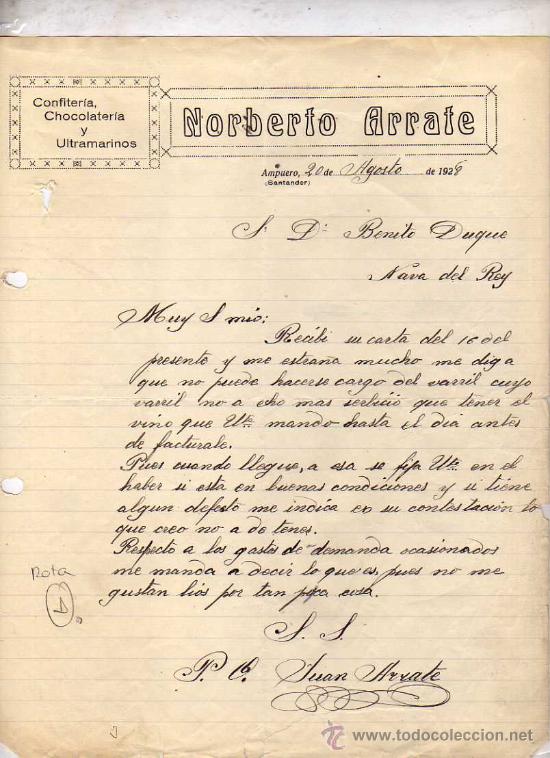 Confitería,
Chocolatería
y
Ultramarinos
Norberto Arrate
Ampuero, 20 de Agosto de 1928
(Santander)
S. Dn. Benito Duque
Nava del Rey
Muy S mio:
Recibi su carta del 16 del
presente y me estraña mucho me diga
que no puede hacerse cargo del varril cuyo
varril no a echo mas serbicio que tener el
vino que Ud. mando hasta el dia antes
de facturale.
Pues cuando llegue, a esa se fija Ud. en el
haber si esta en buenas condiciones y si tiene
algun defesto me indica en su contestacion lo
que creo no a de tener.
Respecto a los gastos de demanda ocasionados
me manda a decir lo que es, pues no me
gustan lios por tan poca cosa.
Rota
S. S.
P. O. Juan Arrate
todocoleccion
www.todocoleccion.net